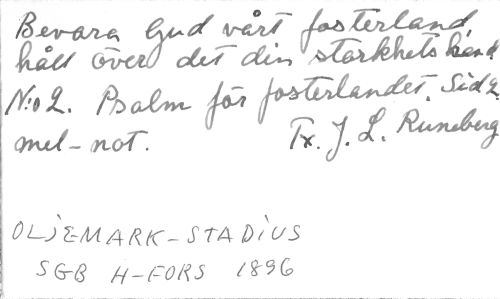 Bevara Gud vårt fosterland,
håll över det din starkhets hand
N:o 2. Psalm för fosterlandet. Sid 2.
mel-not. Tx. J. L. Runeberg
OLJEMARK-STADIUS
SGB H-FORS 1896